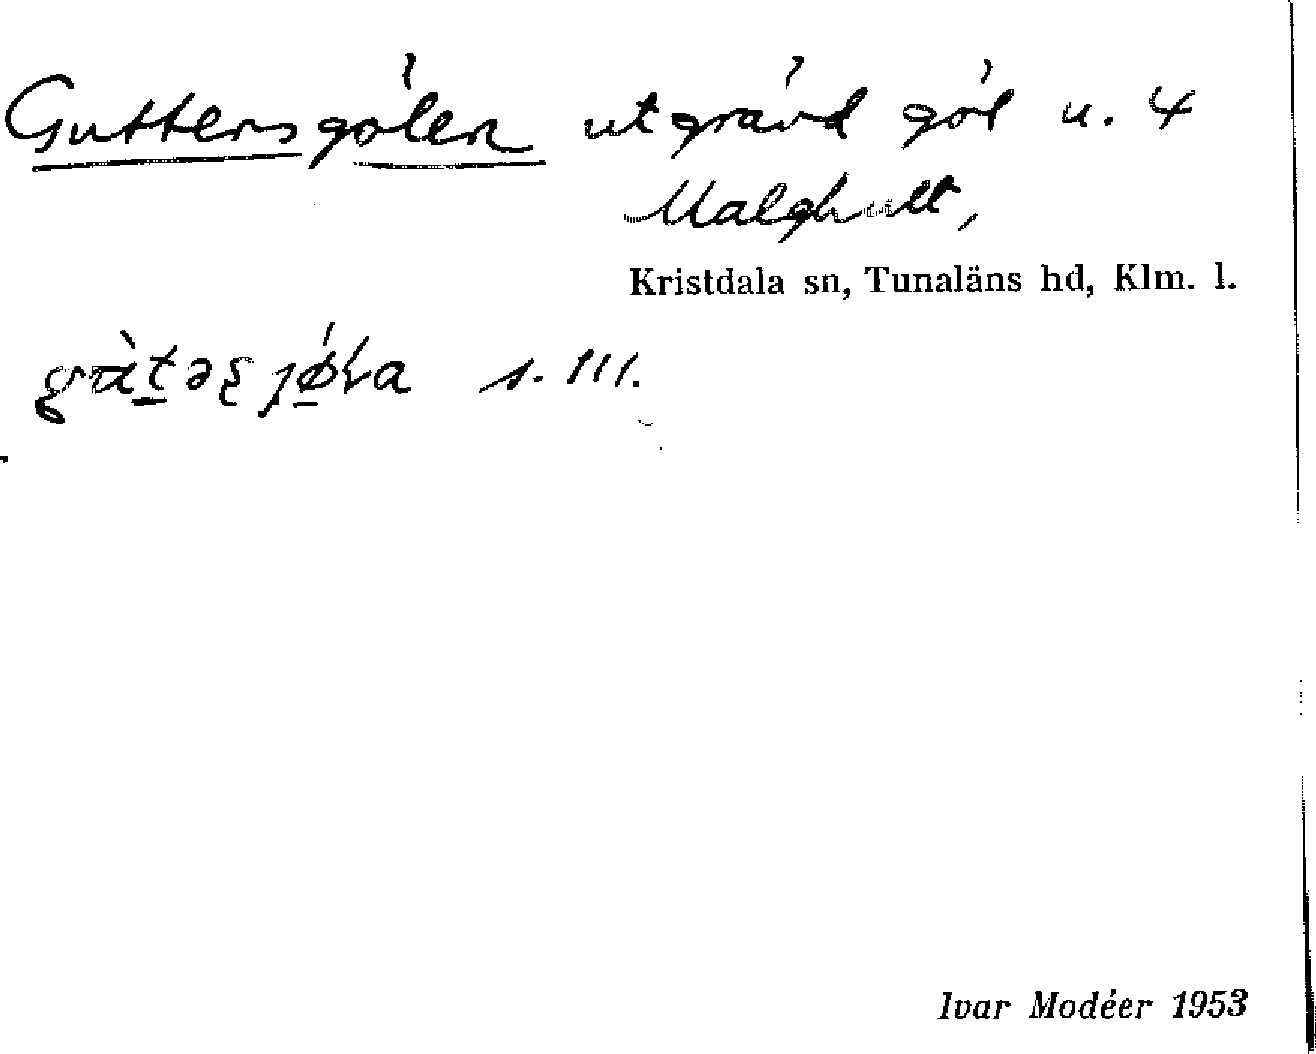 Guttersgölen utgrävd göl u. 4
Malghult,
Kristdala sn, Tunaläns hd, Klm. l.
s. III.
Ivar Modéer 1953